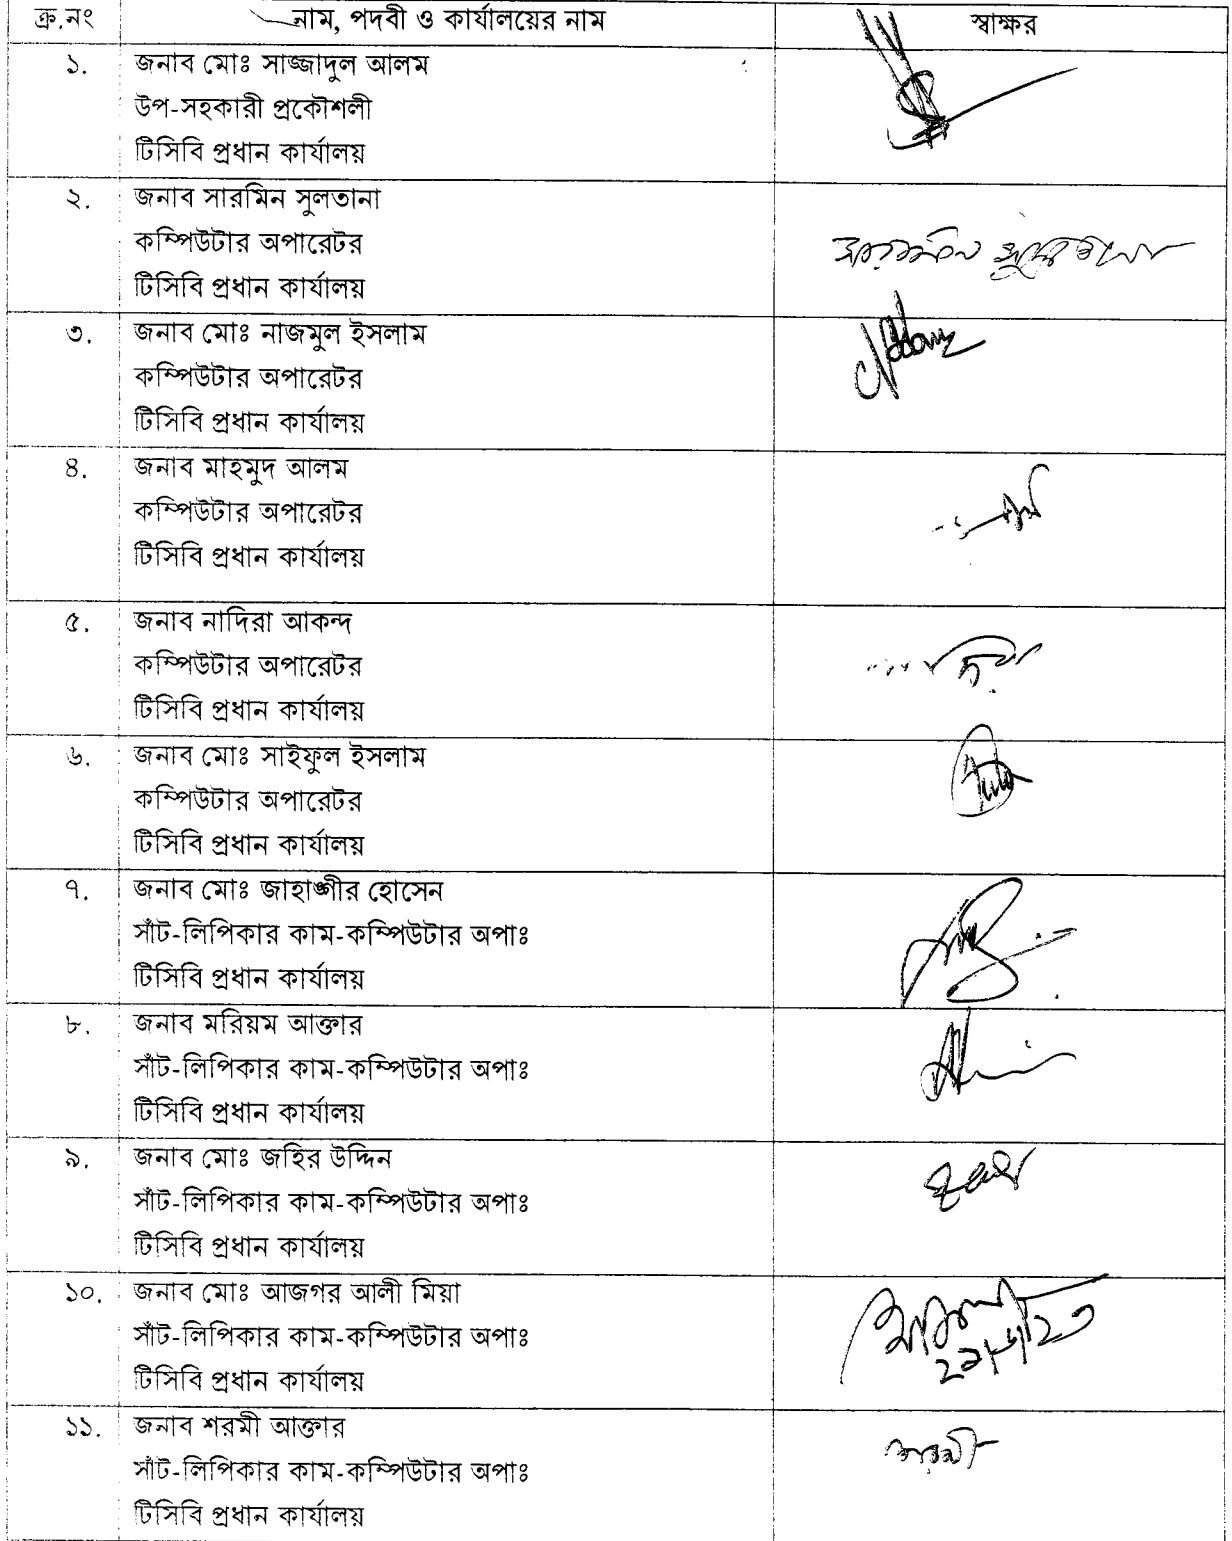 ক্র.নং নাম, পদবী ও কার্যালয়ের নাম স্বাক্ষর
১. জনাব মোঃ সাজ্জাদুল আলম
উপ-সহকারী প্রকৌশলী
টিসিবি প্রধান কার্যালয়
২. জনাব সারমিন সুলতানা
কম্পিউটার অপারেটর
সারমিন সুলতানা
টিসিবি প্রধান কার্যালয়
৩. জনাব মোঃ নাজমুল ইসলাম
কম্পিউটার অপারেটর
টিসিবি প্রধান কার্যালয়
৪. জনাব মাহমুদ আলম
কম্পিউটার অপারেটর
টিসিবি প্রধান কার্যালয়
৫. জনাব নাদিরা আকন্দ
কম্পিউটার অপারেটর
টিসিবি প্রধান কার্যালয়
৬. জনাব মোঃ সাইফুল ইসলাম
কম্পিউটার অপারেটর
টিসিবি প্রধান কার্যালয়
৭. জনাব মোঃ জাহাঙ্গীর হোসেন
সাঁট-লিপিকার কাম-কম্পিউটার অপাঃ
টিসিবি প্রধান কার্যালয়
৮. জনাব মরিয়ম আক্তার
সাঁট-লিপিকার কাম-কম্পিউটার অপাঃ
টিসিবি প্রধান কার্যালয়
৯. জনাব মোঃ জহির উদ্দিন
সাঁট-লিপিকার কাম-কম্পিউটার অপাঃ
টিসিবি প্রধান কার্যালয়
১০. জনাব মোঃ আজগর আলী মিয়া
সাঁট-লিপিকার কাম-কম্পিউটার অপাঃ
টিসিবি প্রধান কার্যালয়
১১. জনাব শরমী আক্তার
সাঁট-লিপিকার কাম-কম্পিউটার অপাঃ
টিসিবি প্রধান কার্যালয়